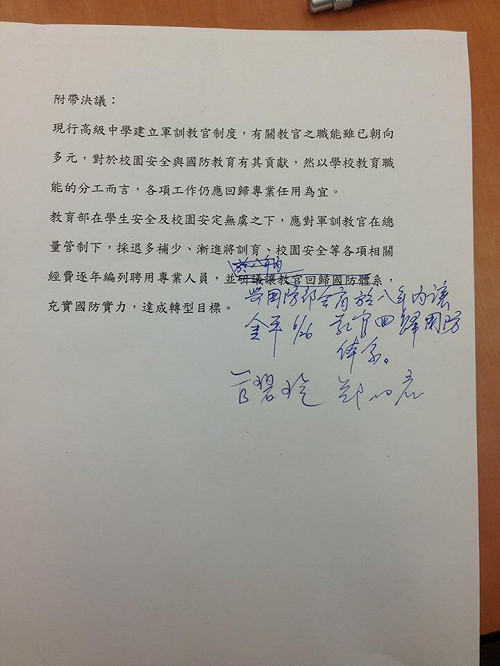 附帶決議：
現行高級中學建立軍訓教官制度，有關教官之職能雖已朝向
多元，對於校園安全與國防教育有其貢獻，然以學校教育職
能的分工而言，各項工作仍應回歸專業任用為宜。
教育部在學生安全及校園安定無虞之下，應對軍訓教官在總
量管制下，採退多補少、漸進將訓育、校園安全等各項相關
於八年內
經費逐年編列聘用專業人員，並研議讓教官回歸國防體系，
與國防部會商於八年內讓
充實國防實力，達成轉型目標。
教官回歸國防
体系。
管碧玲